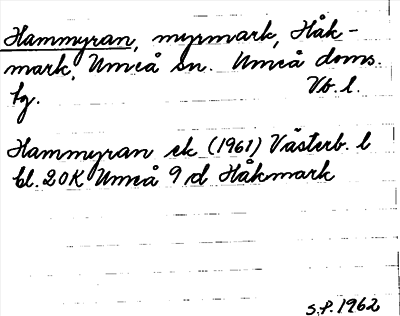 Hammyran, myrmark, Håk-
mark, Umeå sn. Umeå doms.
hg. Vb. l.
Hammyran ek (1961) Västerb. l
bl. 20K Umeå 9 d Håkmark
S.P. 1962